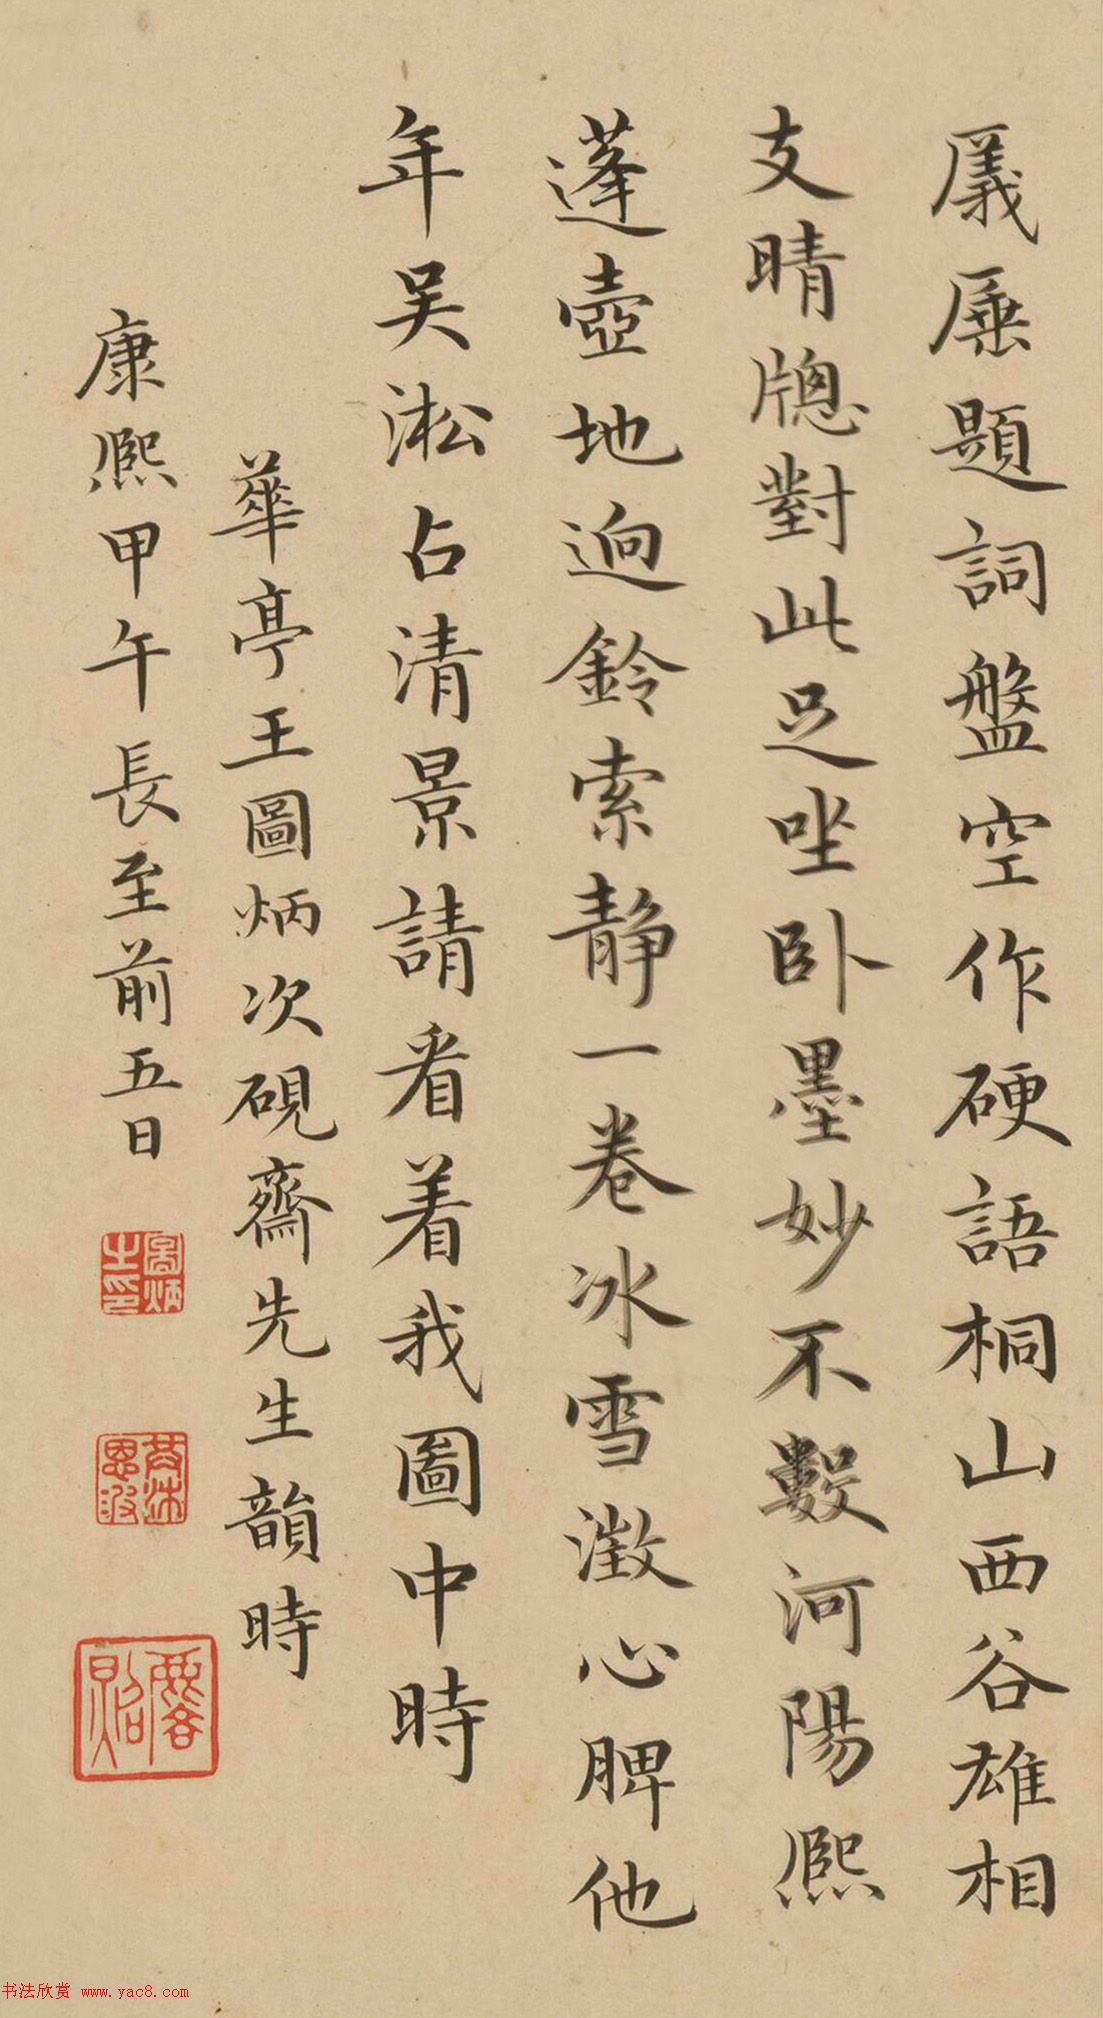 羛㕒題詞盤空作硬語桐山西谷雄相
支晴牕對此足坐卧墨妙不數河陽熙
蓬壺地迥鈴索静一卷冰雪澂心脾他
年吴淞占清景請看着我圖中時
華亭王圖炳次硯齋先生韻時
康熙甲午長至前五日
圖炳之印
書法欣赏 www.yac8.com